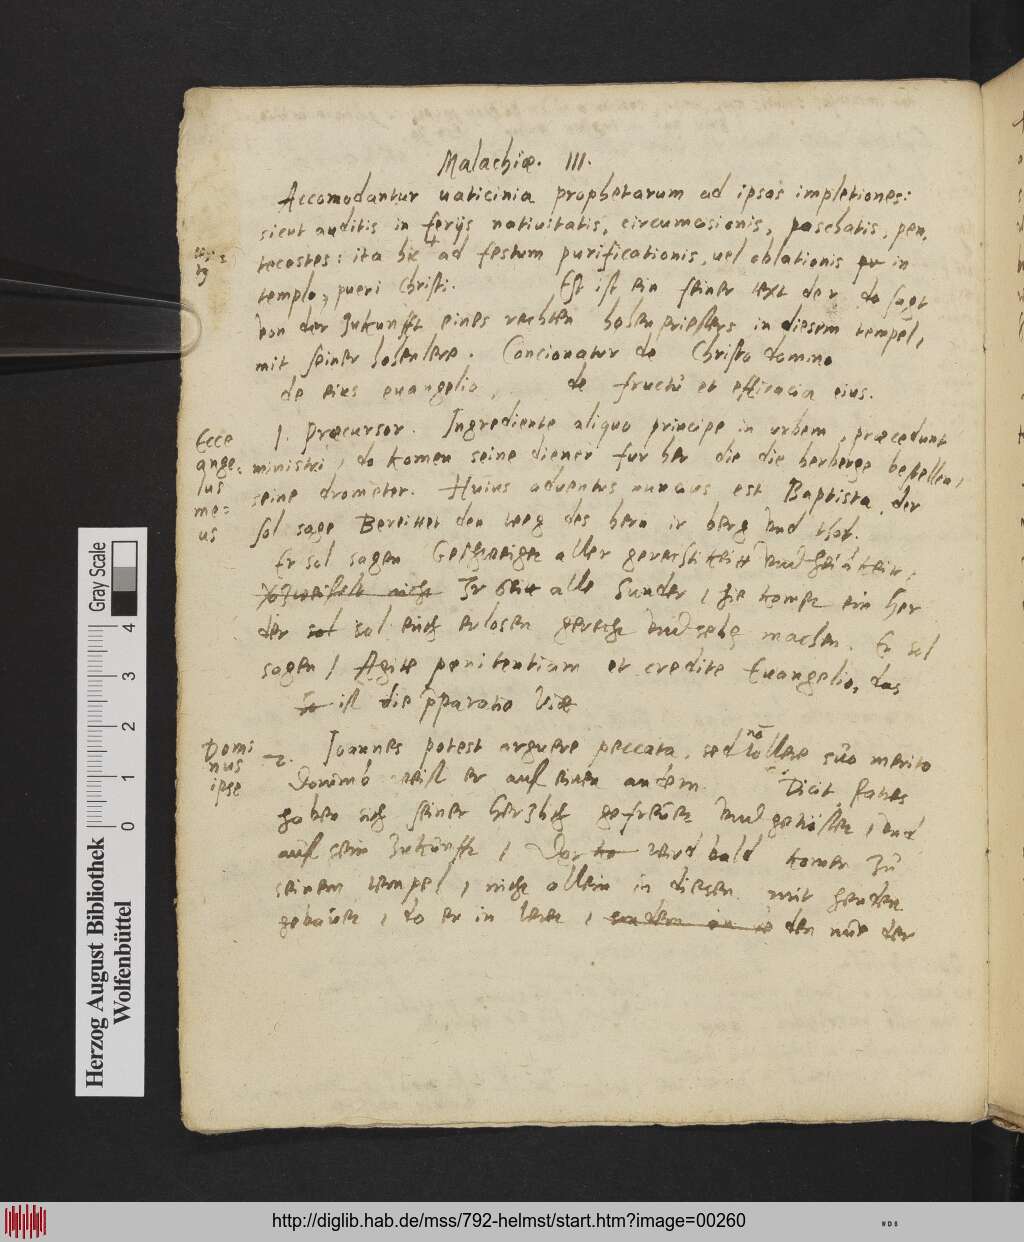 Malachiæ. III.
Accomodantur uaticinia prophetarum ad ipsas impletiones:
sicut auditis in ferijs natiuitatis, circumcisionis, paschatis, pen,
tecostes: ita hic ad festum purificationis, uel oblationis in
templo, pueri Christi. Est ist ein feiner text der do sagt
von der zukunfft eines rechten hohenpriesters in diesem tempel,
mit seiner hohen lere. Concionatur de Christo domino
de eius euangelio, de fructu et efficacia eius.
Ecce
ange:
lus
me:
us
1. Præcursor. Ingrediente aliquo principe in urbem, præcedunt
ministri, do komen seine diener fur her die die herberge bestellen,
seine drometer. Huius aduentus nuncius est Baptista, der
sol sage Bereittet den weg des hern ir berg vnd thal.
Er sol sagen Geschweiget aller gerechtikeitt vnd heilikeit,
nicht Ir seitt alle Sunder, hie kompt ein her
der sol sol euch erlosen gerecht vnd selig machen. Er sol
sagen / Agite penitentiam et credite Euangelio, das
ist die pparatio viæ
Domi
nus
ipse
2. Joannes potest arguere peccata, sed nō tollere suo merito
Dominū weist er auf einen andern. Dicit patres
haben sich seiner hertzlich gefreuet vnd getröstet, vnd
auf sein zukunfft, Der wird bald komen zu
seinem tempel, nicht allein in diesen mit henden
gebauet, do er in leret, den der
Gray Scale
4
3
2
1
0
Herzog August Bibliothek
Wolfenbüttel
http://diglib.hab.de/mss/792-helmst/start.htm?image=00260